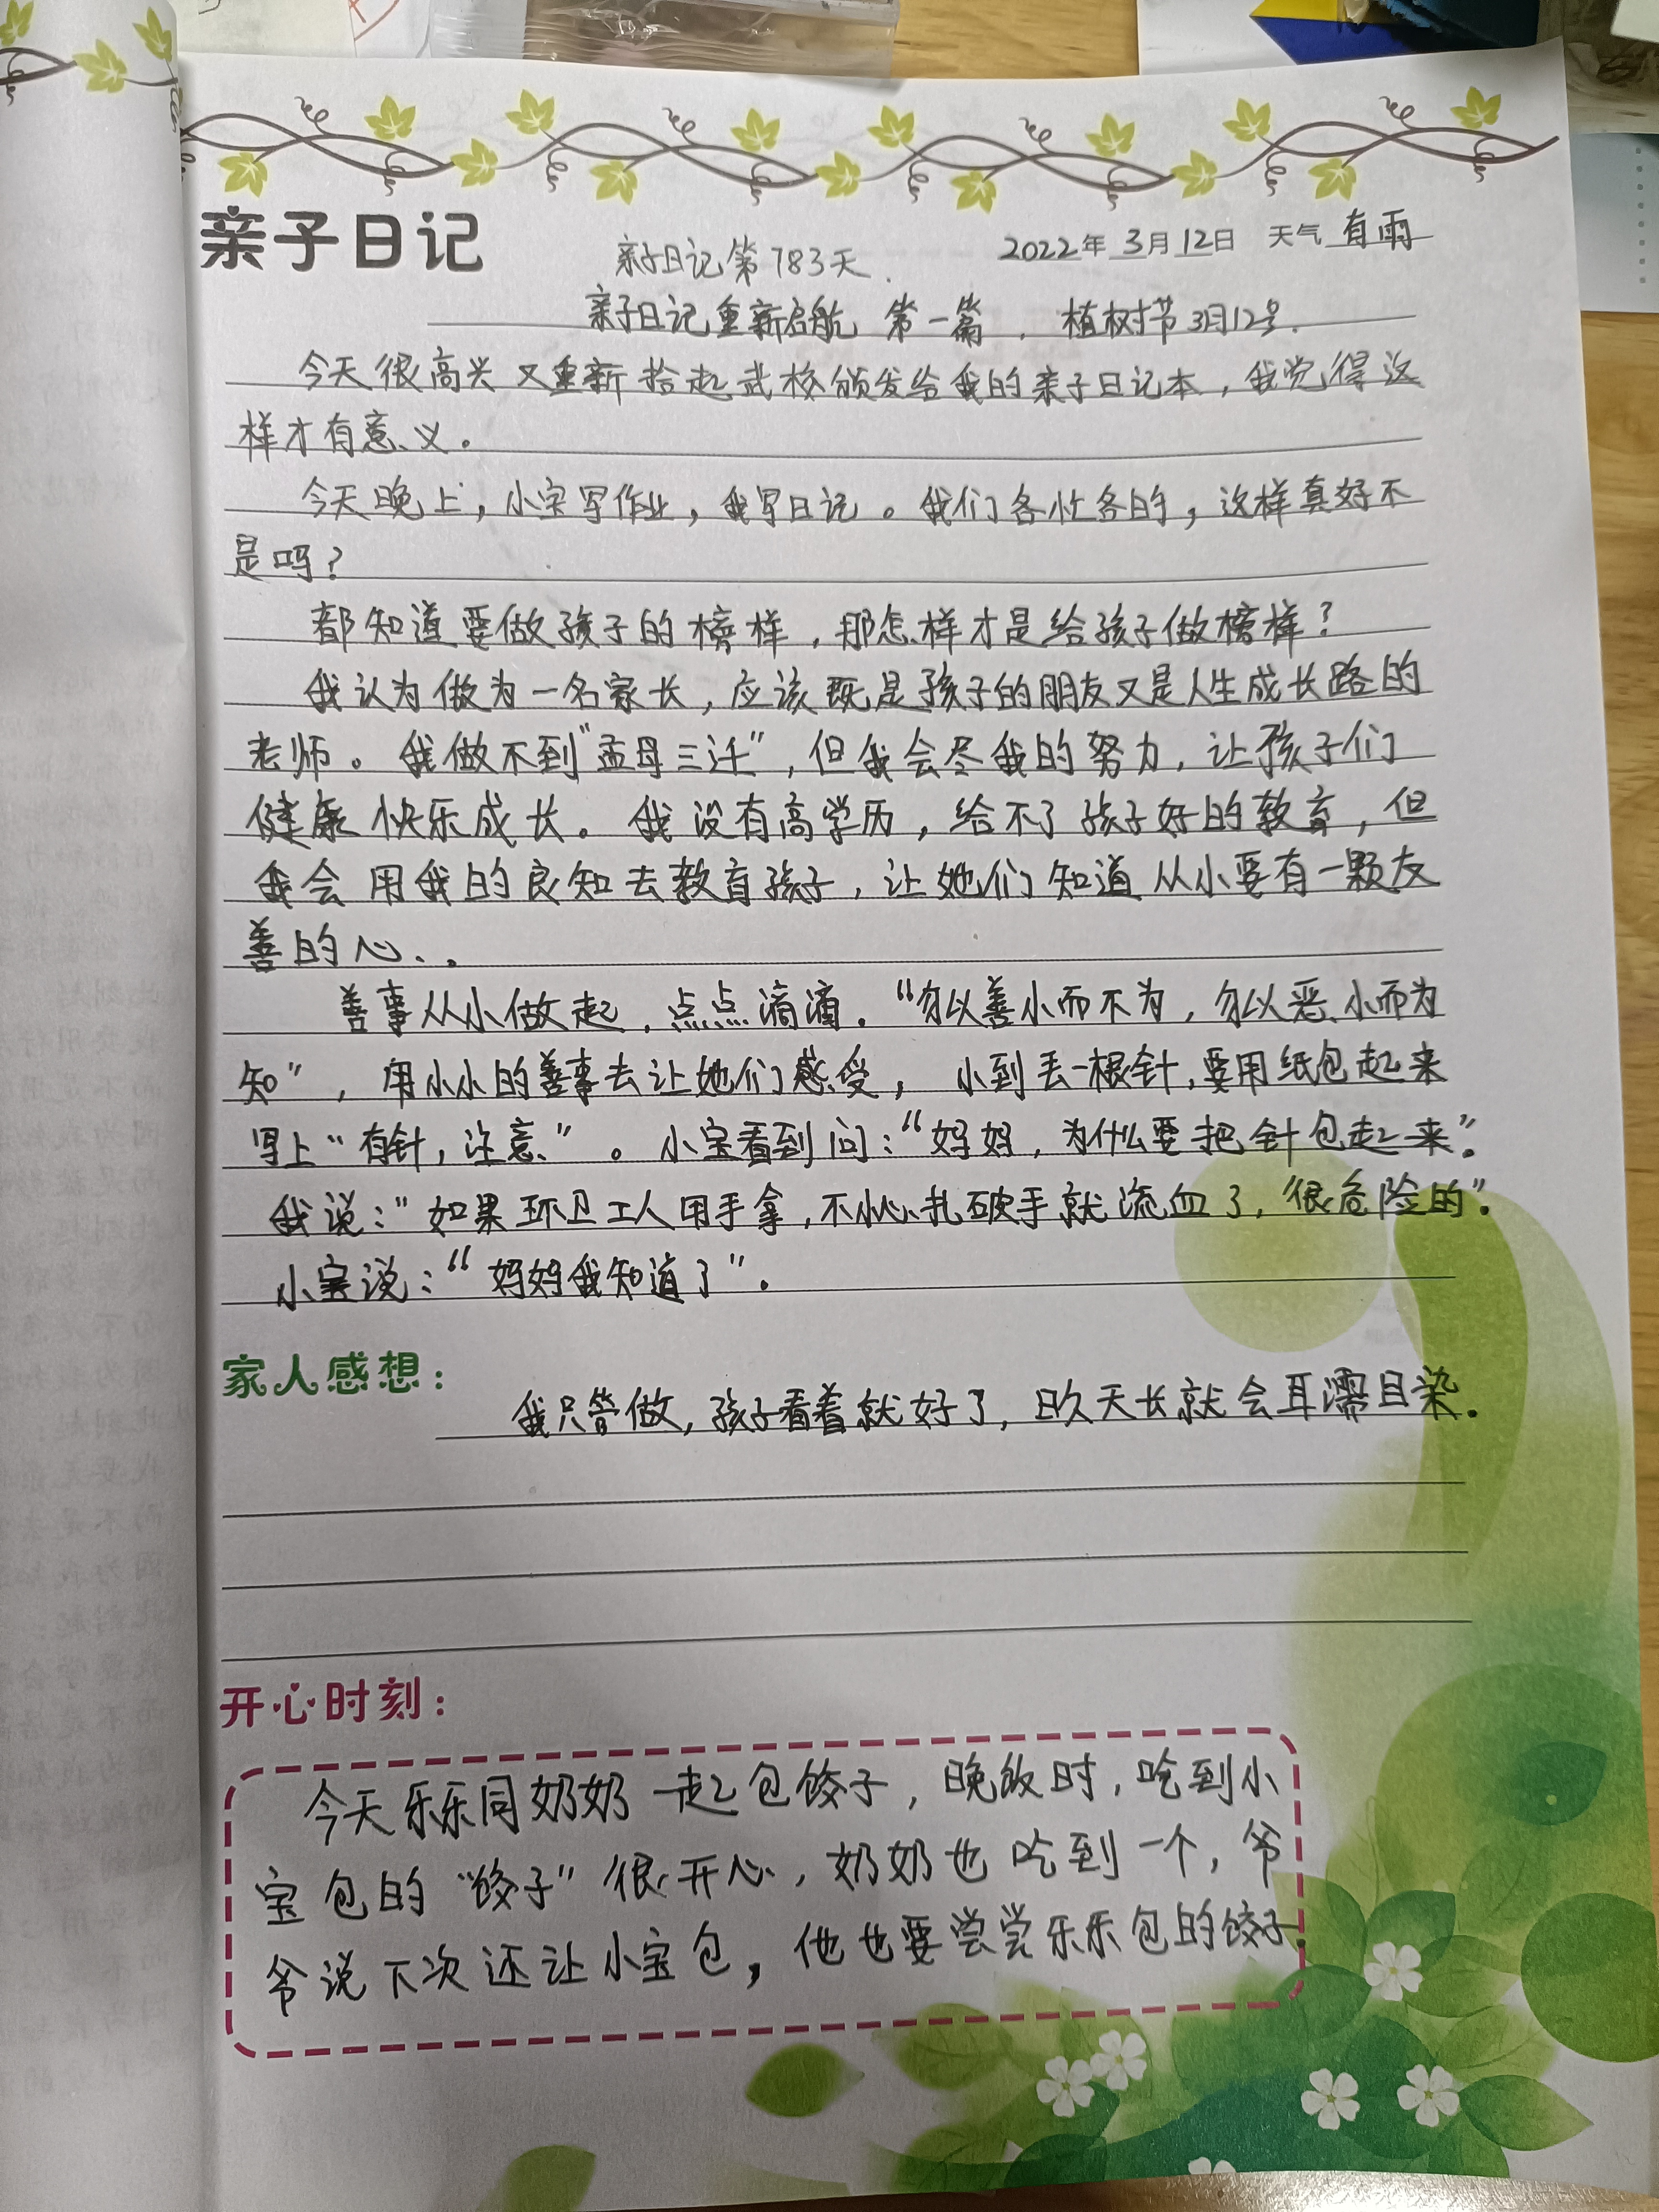 亲子日记
亲子日记第783天.
2022年 3月12日 天气 有雨
亲子日记重新启航 第一篇 . 植树节3月12号.
今天很高兴又重新拾起武校颁发给我的亲子日记本,我觉得这
样才有意义。
今天晚上,小宝写作业,我写日记。我们各忙各的,这样真好不
是吗?
都知道要做孩子的榜样,那怎样才是给孩子做榜样?
我认为做为一名家长,应该既是孩子的朋友又是人生成长路的
老师。我做不到"孟母三迁",但我会尽我的努力,让孩子们
健康快乐成长。我没有高学历,给不了孩子好的教育,但
我会用我的良知去教育孩子,让她们知道从小要有一颗友
善的心..
善事从小做起,点点滴滴。"勿以善小而不为,勿以恶小而为
知",用小小的善事去让她们感受,小到丢一根针,要用纸包起来
写上"有针,注意"。小宝看到问:"妈妈,为什么要把针包起来"。
我说:"如果环卫工人用手拿,不小心扎破手就流血了,很危险的"。
小宝说:"妈妈我知道了"。
家人感想:
我只管做,孩子看着就好了,日久天长就会耳濡目染.
开心时刻:
今天乐乐同奶奶一起包饺子,晚饭时,吃到小
宝包的"饺子"很开心,奶奶也吃到一个,爷
爷说下次还让小宝包,他也要尝尝乐乐包的饺子